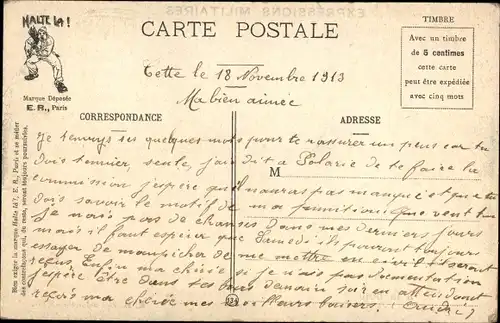 EXPRESSIONS MILITAIRES
HALTE LÀ!
CARTE POSTALE
TIMBRE
Avec un timbre
de 5 centimes
cette carte
peut être expédiée
avec cinq mots
Marque Déposée
E. R., Paris
Cette le 18 Novembre 1913
Ma bien aimée
CORRESPONDANCE
ADRESSE
M
Je t'envoys ses quelques mots pour te rassurer un peu car tu
dois t'ennuier, seule, j'ai dit a de te faire la
commission j'espère qu'il n'auras pas manqué et que tu
dois savoir le motif de ma punition que veut tu
Je n'ais pas de chanses Dans mes derniers jours
mais il faut espérer que Samedi ils pourront toujours
essayer de m'empicher de me mettre en civil seront
reçus. Enfin ma chérie si je n'ais pas d'ementation
j'espère être Dans tes bras demain soir en attendant
reçois ma chérie mes meilleurs baisers.
Bien exiger la marque Halte là!, E. R., Paris et se méfier
des contrefaçons qui, du reste, seront toujours poursuivies.